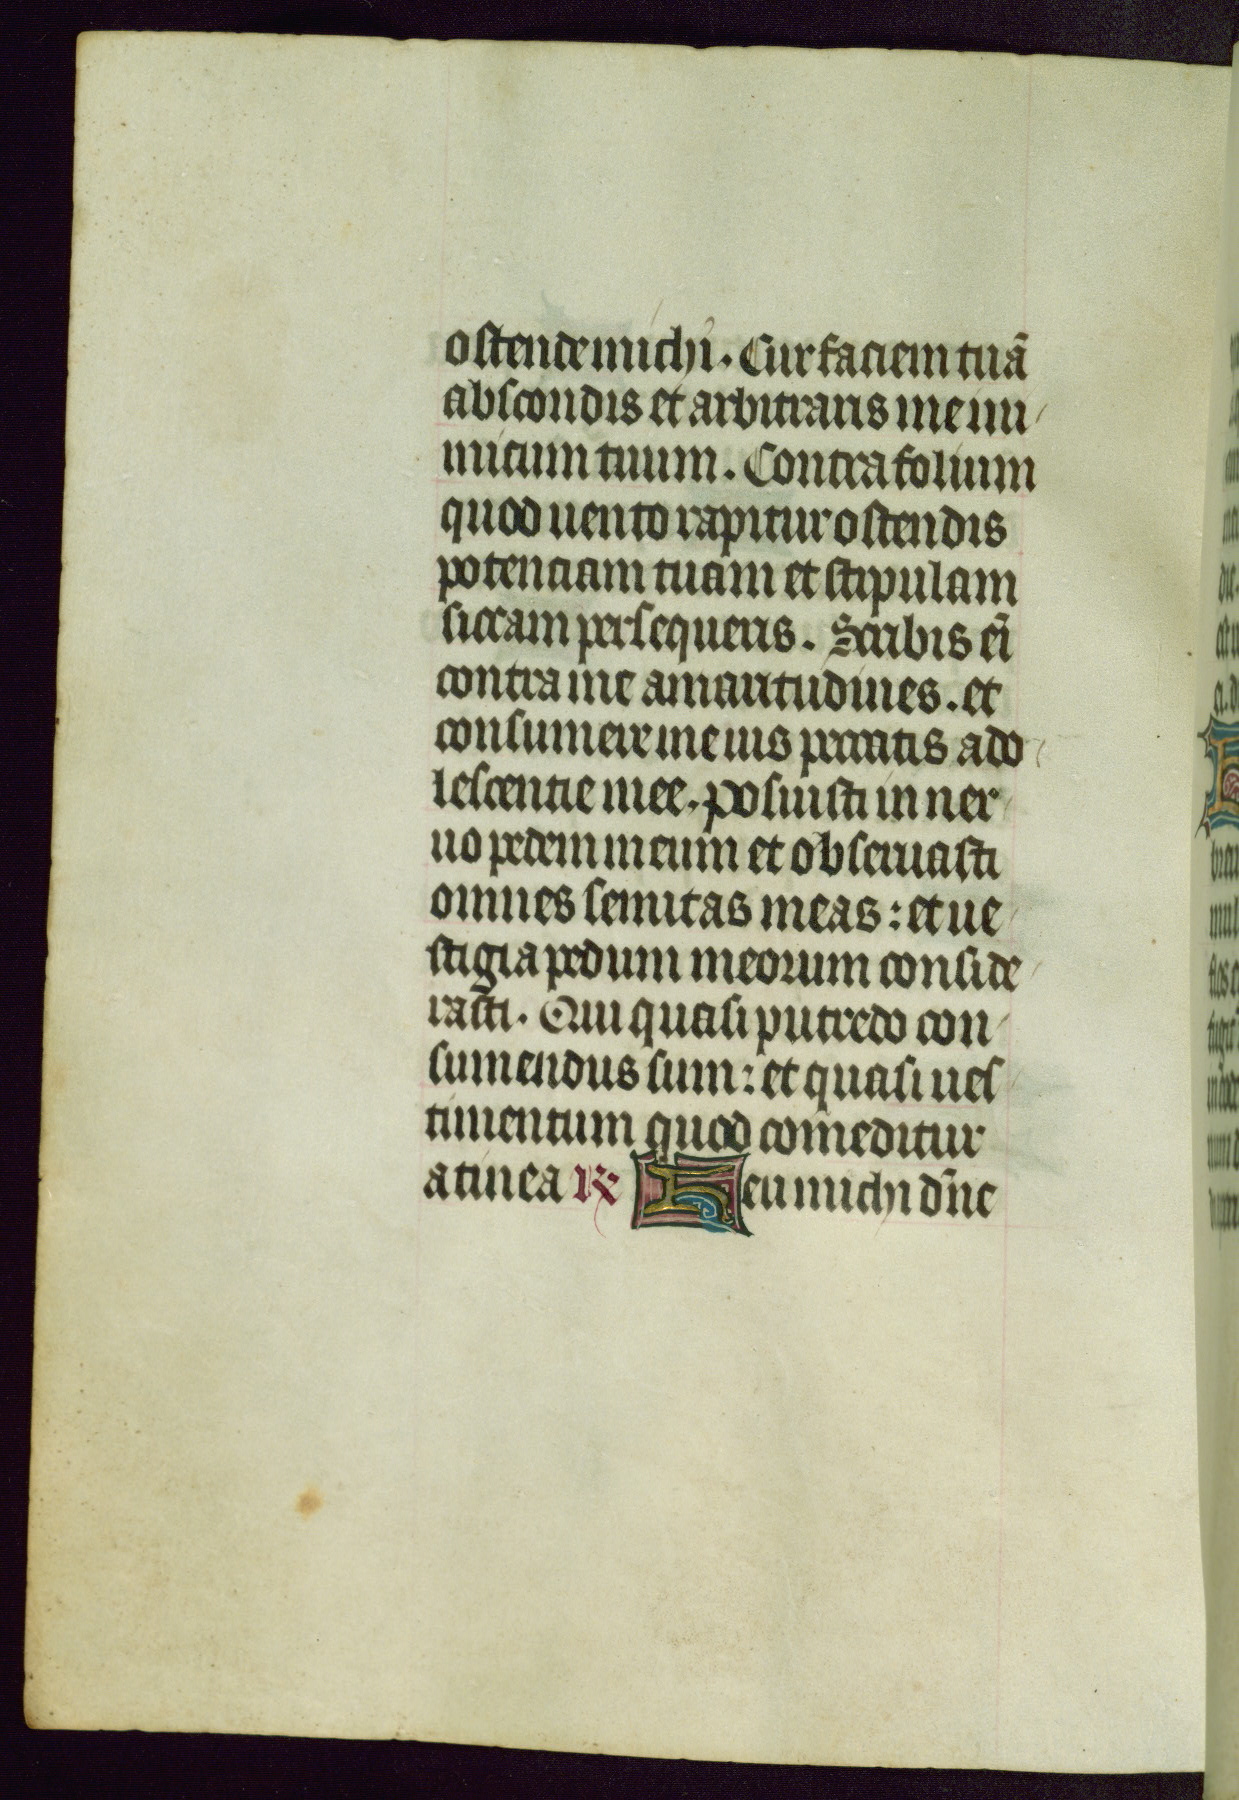 ostende michi. Cur faciem tuā
abscondis et arbitraris me ini
micum tuum. Contra folium
quod uento rapitur ostendis
potenciam tuam et stipulam
siccam persequeris. Scribis ei̅
contra me amaritudines. et
consumere me uis peccatis ado
lescentie mee. posuisti in ner
uo pedem meum et obseruasti
omnes semitas meas: et ue
stigia pedum meorum conside
rasti. Qui quasi putredo con
sumendus sum: et quasi ues
timentum quod comeditur
a tinea R Heu michi dn̄e